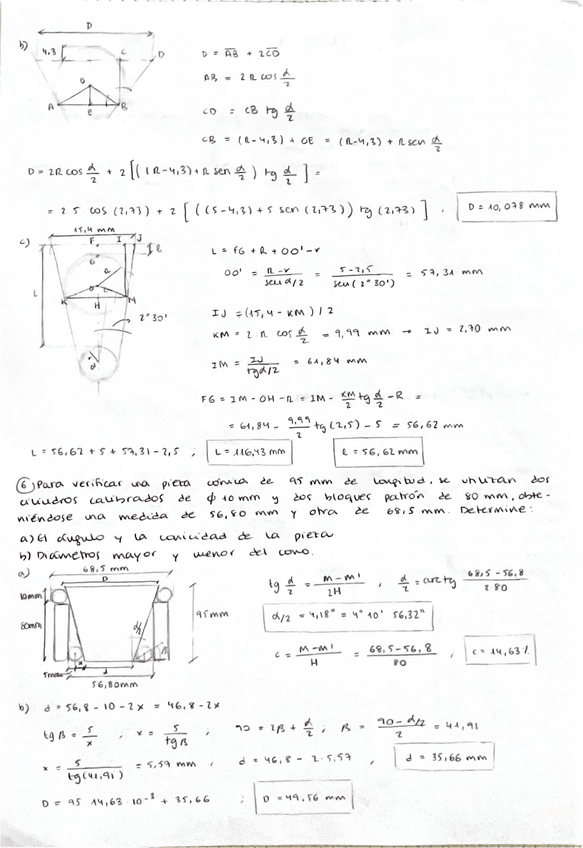 D
b)
4,3
C
D
O
A
E
B
D = AB + 2CD
AB = 2R cos α/2
CD = CB tg α/2
CB = (R-4,3) + OE = (R-4,3) + R sen α/2
D = 2R cos α/2 + 2 [ ((R-4,3) + R sen α/2) tg α/2 ] =
= 2 5 cos (2,73) + 2 [ ((5-4,3) + 5 sen (2,73)) tg (2,73) ] , D = 10,078 mm
c)
15,4 mm
F I J
G
l
L
O
K
H
M
2°30'
L = FG + R + OO' - r
OO' = R-r / sen α/2 = 5-2,5 / sen(2°30') = 57,31 mm
IJ = (15,4 - KM) / 2
KM = 2 R cos α/2 = 9,99 mm → IJ = 2,70 mm
IM = IJ / tg α/2 = 61,84 mm
FG = IM - OH - R = IM - KM/2 tg α/2 - R =
= 61,84 - 9,99/2 tg (2,5) - 5 = 56,62 mm
L = 56,62 + 5 + 57,31 - 2,5 ; L = 116,43 mm l = 56,62 mm
6 Para verificar una pieza cónica de 95 mm de longitud, se utilizan dos
cilindros calibrados de ϕ 10 mm y dos bloques patrón de 80 mm, obte-
niéndose una medida de 56,80 mm y otra de 68,5 mm. Determine:
a) El ángulo y la conicidad de la pieza
b) Diámetros mayor y menor del cono.
a)
68,5 mm
D
10mm
80mm
95mm
α/2
β
5mm
x
d
56,80mm
tg α/2 = M-M' / 2H , α/2 = arctg 68,5-56,8 / 2 80
α/2 = 4,18° = 4° 10' 56,32"
C = M-M' / H = 68,5-56,8 / 80 , C = 14,63%
b) d = 56,8 - 10 - 2x = 46,8 - 2x
tg β = 5/x , x = 5 / tg β , 90 = 2β + α/2 ; β = 90-α/2 / 2 = 41,91
x = 5 / tg(41,91) = 5,57 mm , d = 46,8 - 2·5,57 , d = 35,66 mm
D = 95 14,63·10⁻³ + 35,66 ; D = 49,56 mm